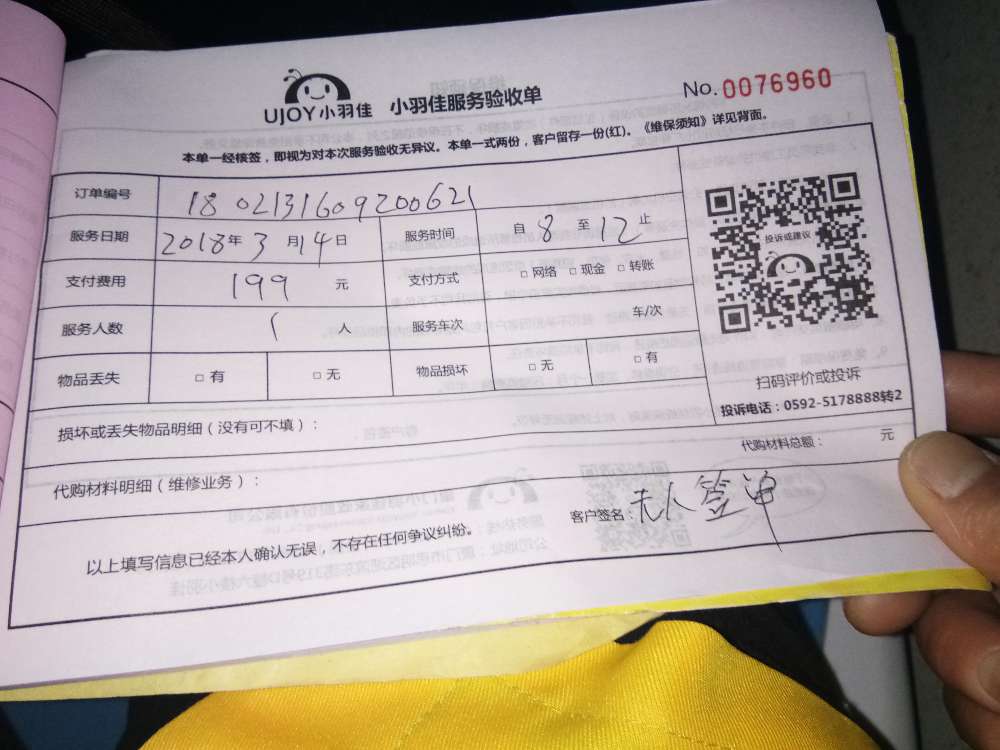 UJOY小羽佳 小羽佳服务验收单 No. 0076960
本单一经核签，即视为对本次服务验收无异议。本单一式两份，客户留存一份(红)。《维保须知》详见背面。
订单编号 180213160920062​1
服务日期 2018年3月14日 服务时间 自8至12止
支付费用 199 元 支付方式 □ 网络 □ 现金 □ 转账
服务人数 1 人 服务车次 车/次
物品丢失 □ 有 □ 无 物品损坏 □ 无 □ 有
投诉或建议
扫码评价或投诉
投诉电话：0592-5178888转2
损坏或丢失物品明细（没有可不填）：
代购材料明细（维修业务）： 代购材料总额： 元
以上填写信息已经本人确认无误，不存在任何争议纠纷。 客户签名：夫人签单